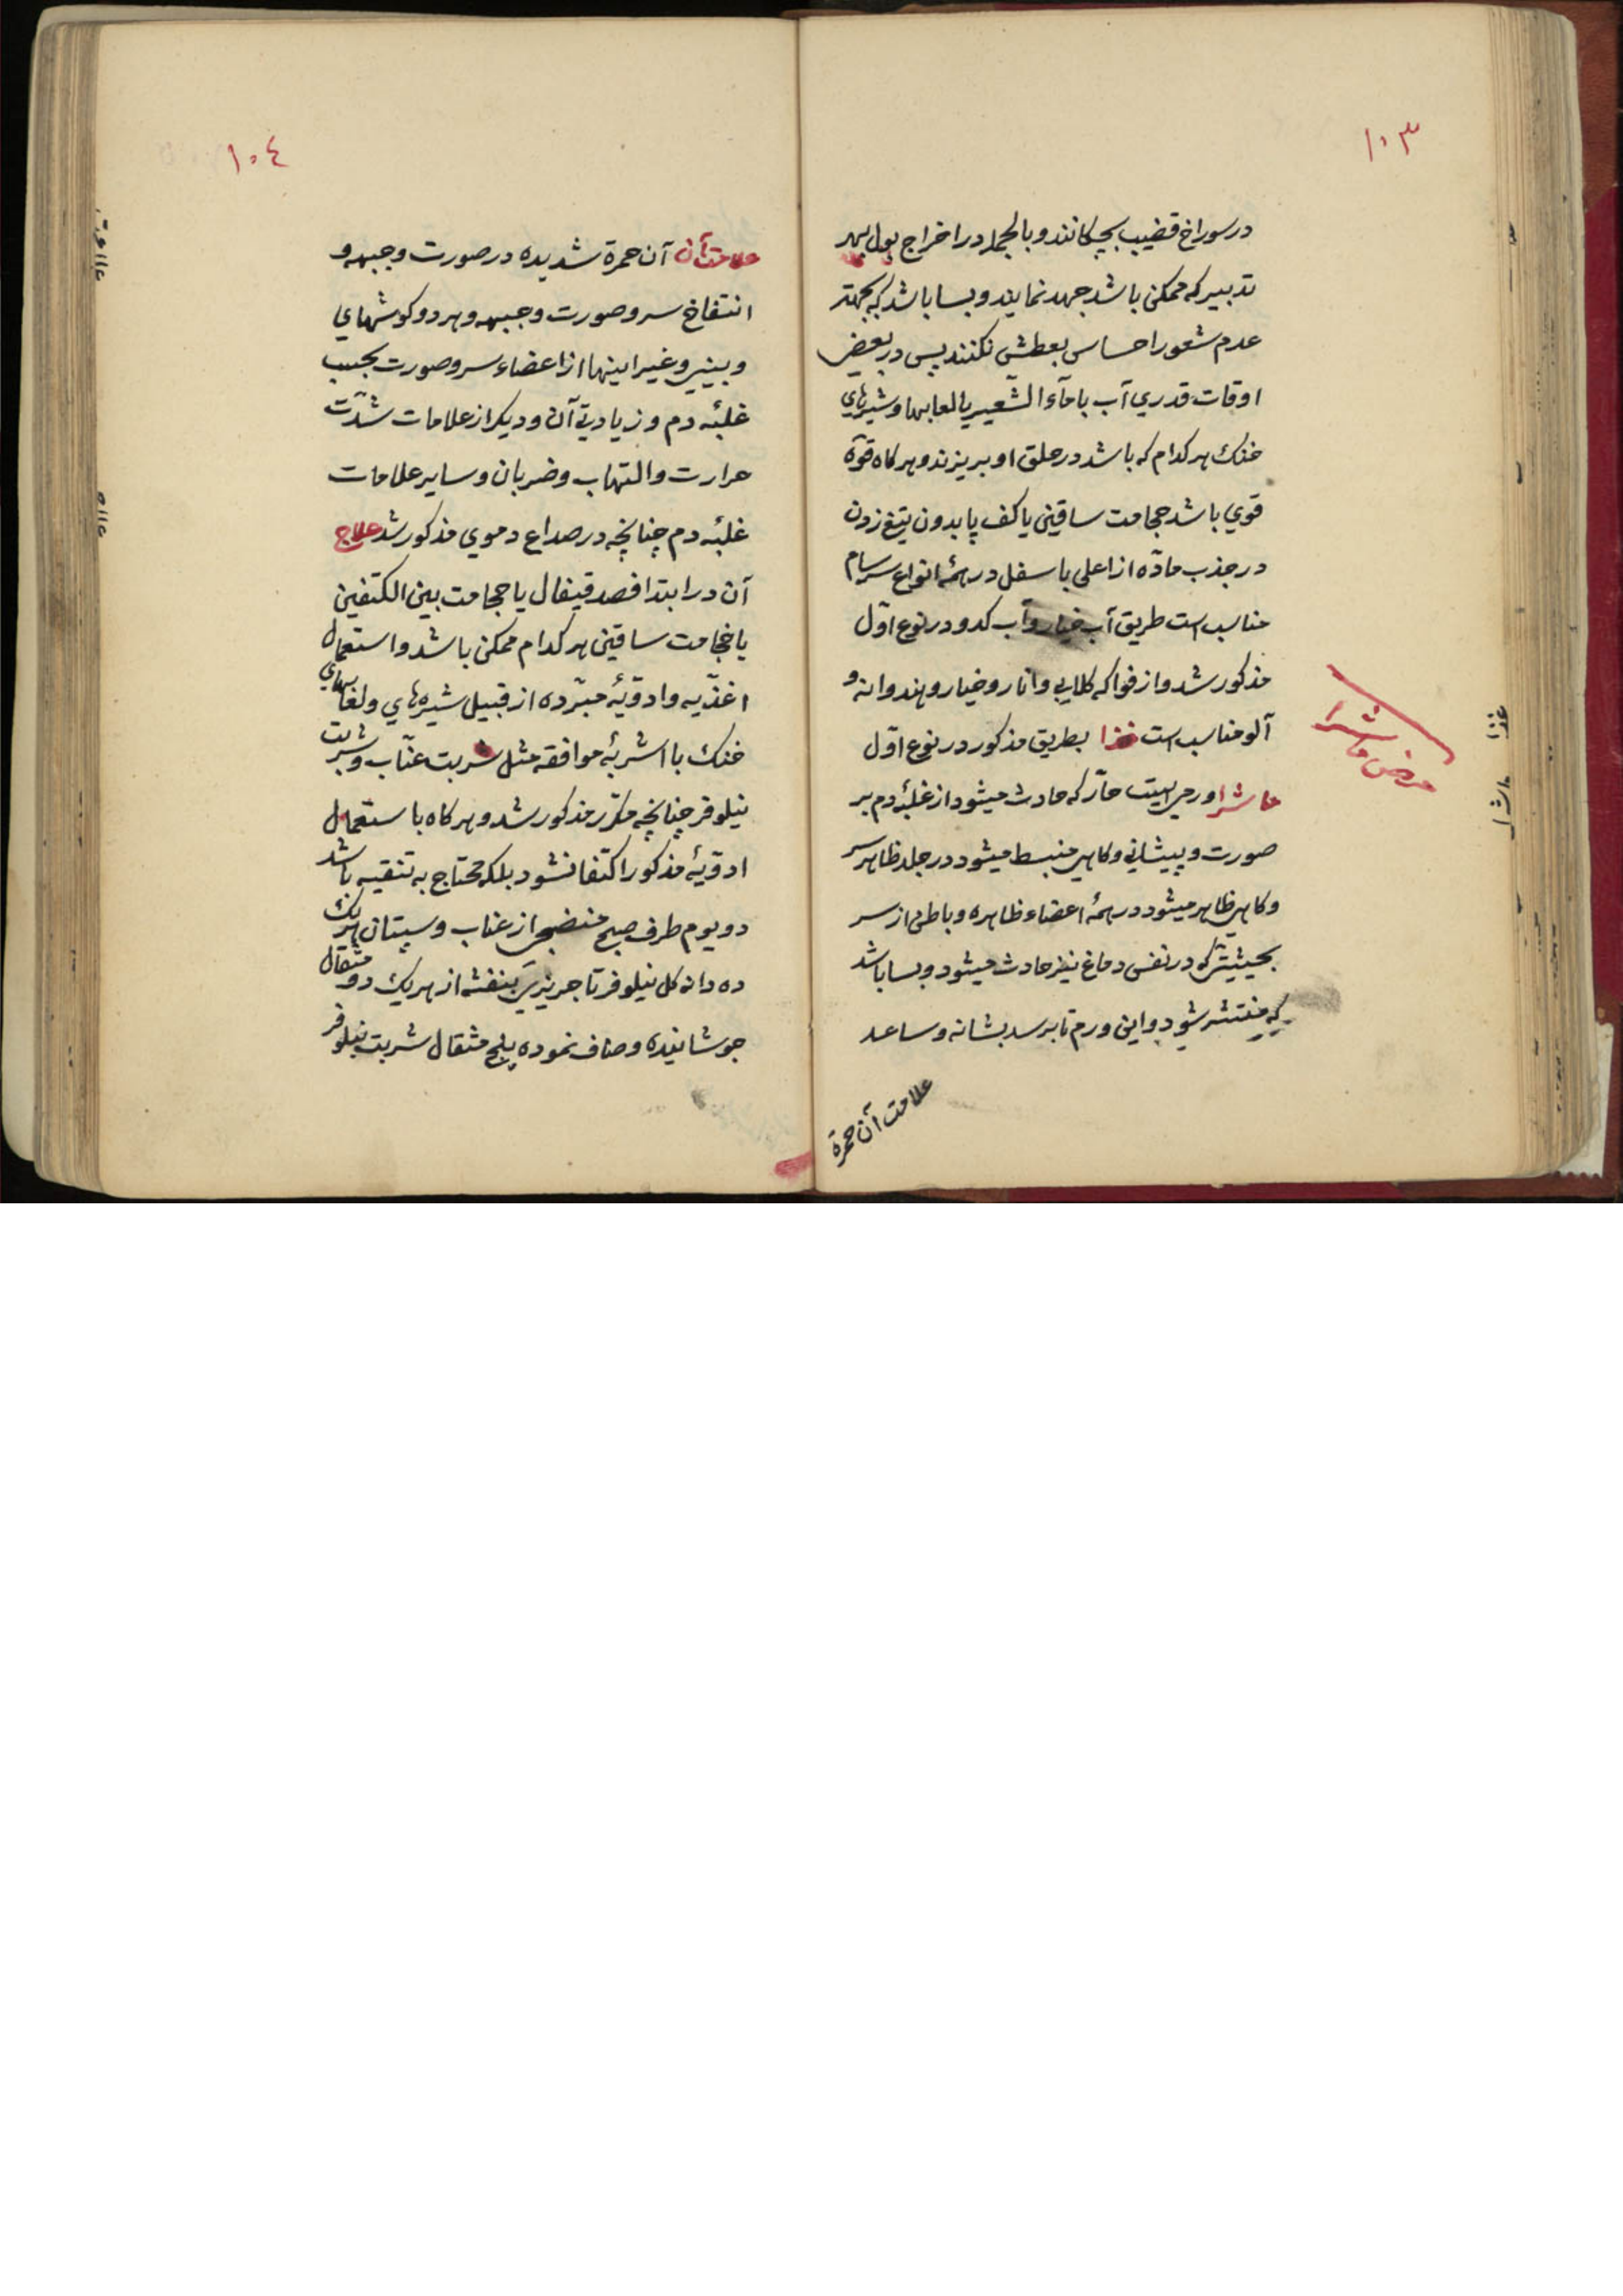 ١٠٣
در سوراخ قضیب بچکانند و بالجمله در اخراج بول بهر
تدبیر که ممکن باشد جهد نمایند و بسا باشد که بجهتر
عدم شعور احساس بعطش نکنند پس در بعض
اوقات قدري آب یا ماء الشّعیر یا لعابها و شیرهاي
خنك هر کدام که باشد در حلق او بریزند و هر کاه قوّة
قوي باشد حجامت ساقین یا کف پا بدون تیغ زدن
در جذب مادّه از اعلی باسفل در همهٔ انواع سرسام
مناسب است طریق آب خیار و آب کدو در نوع اوّل
مذکور شد و از فواکه کلابي و انار و خیار و هندوانه و
آلو مناسب است غذا بطریق مذکور در نوع اوّل
ماشرا ورمي است حارّ که حادث میشود از غلبهٔ دم بر
صورت و پیشاني و کاهي منبسط میشود در جلد ظاهر سر
و کاهي ظاهر میشود در همهٔ اعضاء ظاهره و باطن از سر
بحیثیتي که در نفس دماغ نیز حادث میشود و بسا باشد
که منتشر شود و این ورم تا برسد بشانه و ساعد
علامت آن حمرة
مرض ماشرا
غذا
ماشرا
١٠٤
علامت آن آن حمرة شدیده در صورت و جبهه و
انتفاخ سر و صورت و جبهه و هر دو کوشهاي
و بیني و غیر اینها از اعضاء سر و صورت بجیب
غلبهٔ دم و زیادتي آن و دیکر از علامات شدّت
حرارت و التهاب و ضربان و سایر علامات
غلبهٔ دم چنانچه در صداع دموي مذکور شد علاج
آن در ابتدا فصد قیفال یا حجامت بین الکتفین
یا حجامت ساقین هر کدام ممکن باشد و استعمال
اغذّیه و ادوّیهٔ مبرّده از قبیل شیره هاي و لعابهاي
خنك با اشربهٔ موافقه مثل شربت عنّاب و شربت
نیلوفر چنانچه مکرّر مذکور شد و هر کاه باستعمال
ادوّیهٔ مذکور اکتفا نشود بلکه محتاج به تنقیه باشد
دو یوم طرف صبح منضجي از عناب و سپستان هر یك
ده دانه کل نیلوفر تاجریزي بنفشه از هر یك دو مثقال
جوشانیده و صاف نموده پنج مثقال شربت نیلوفر